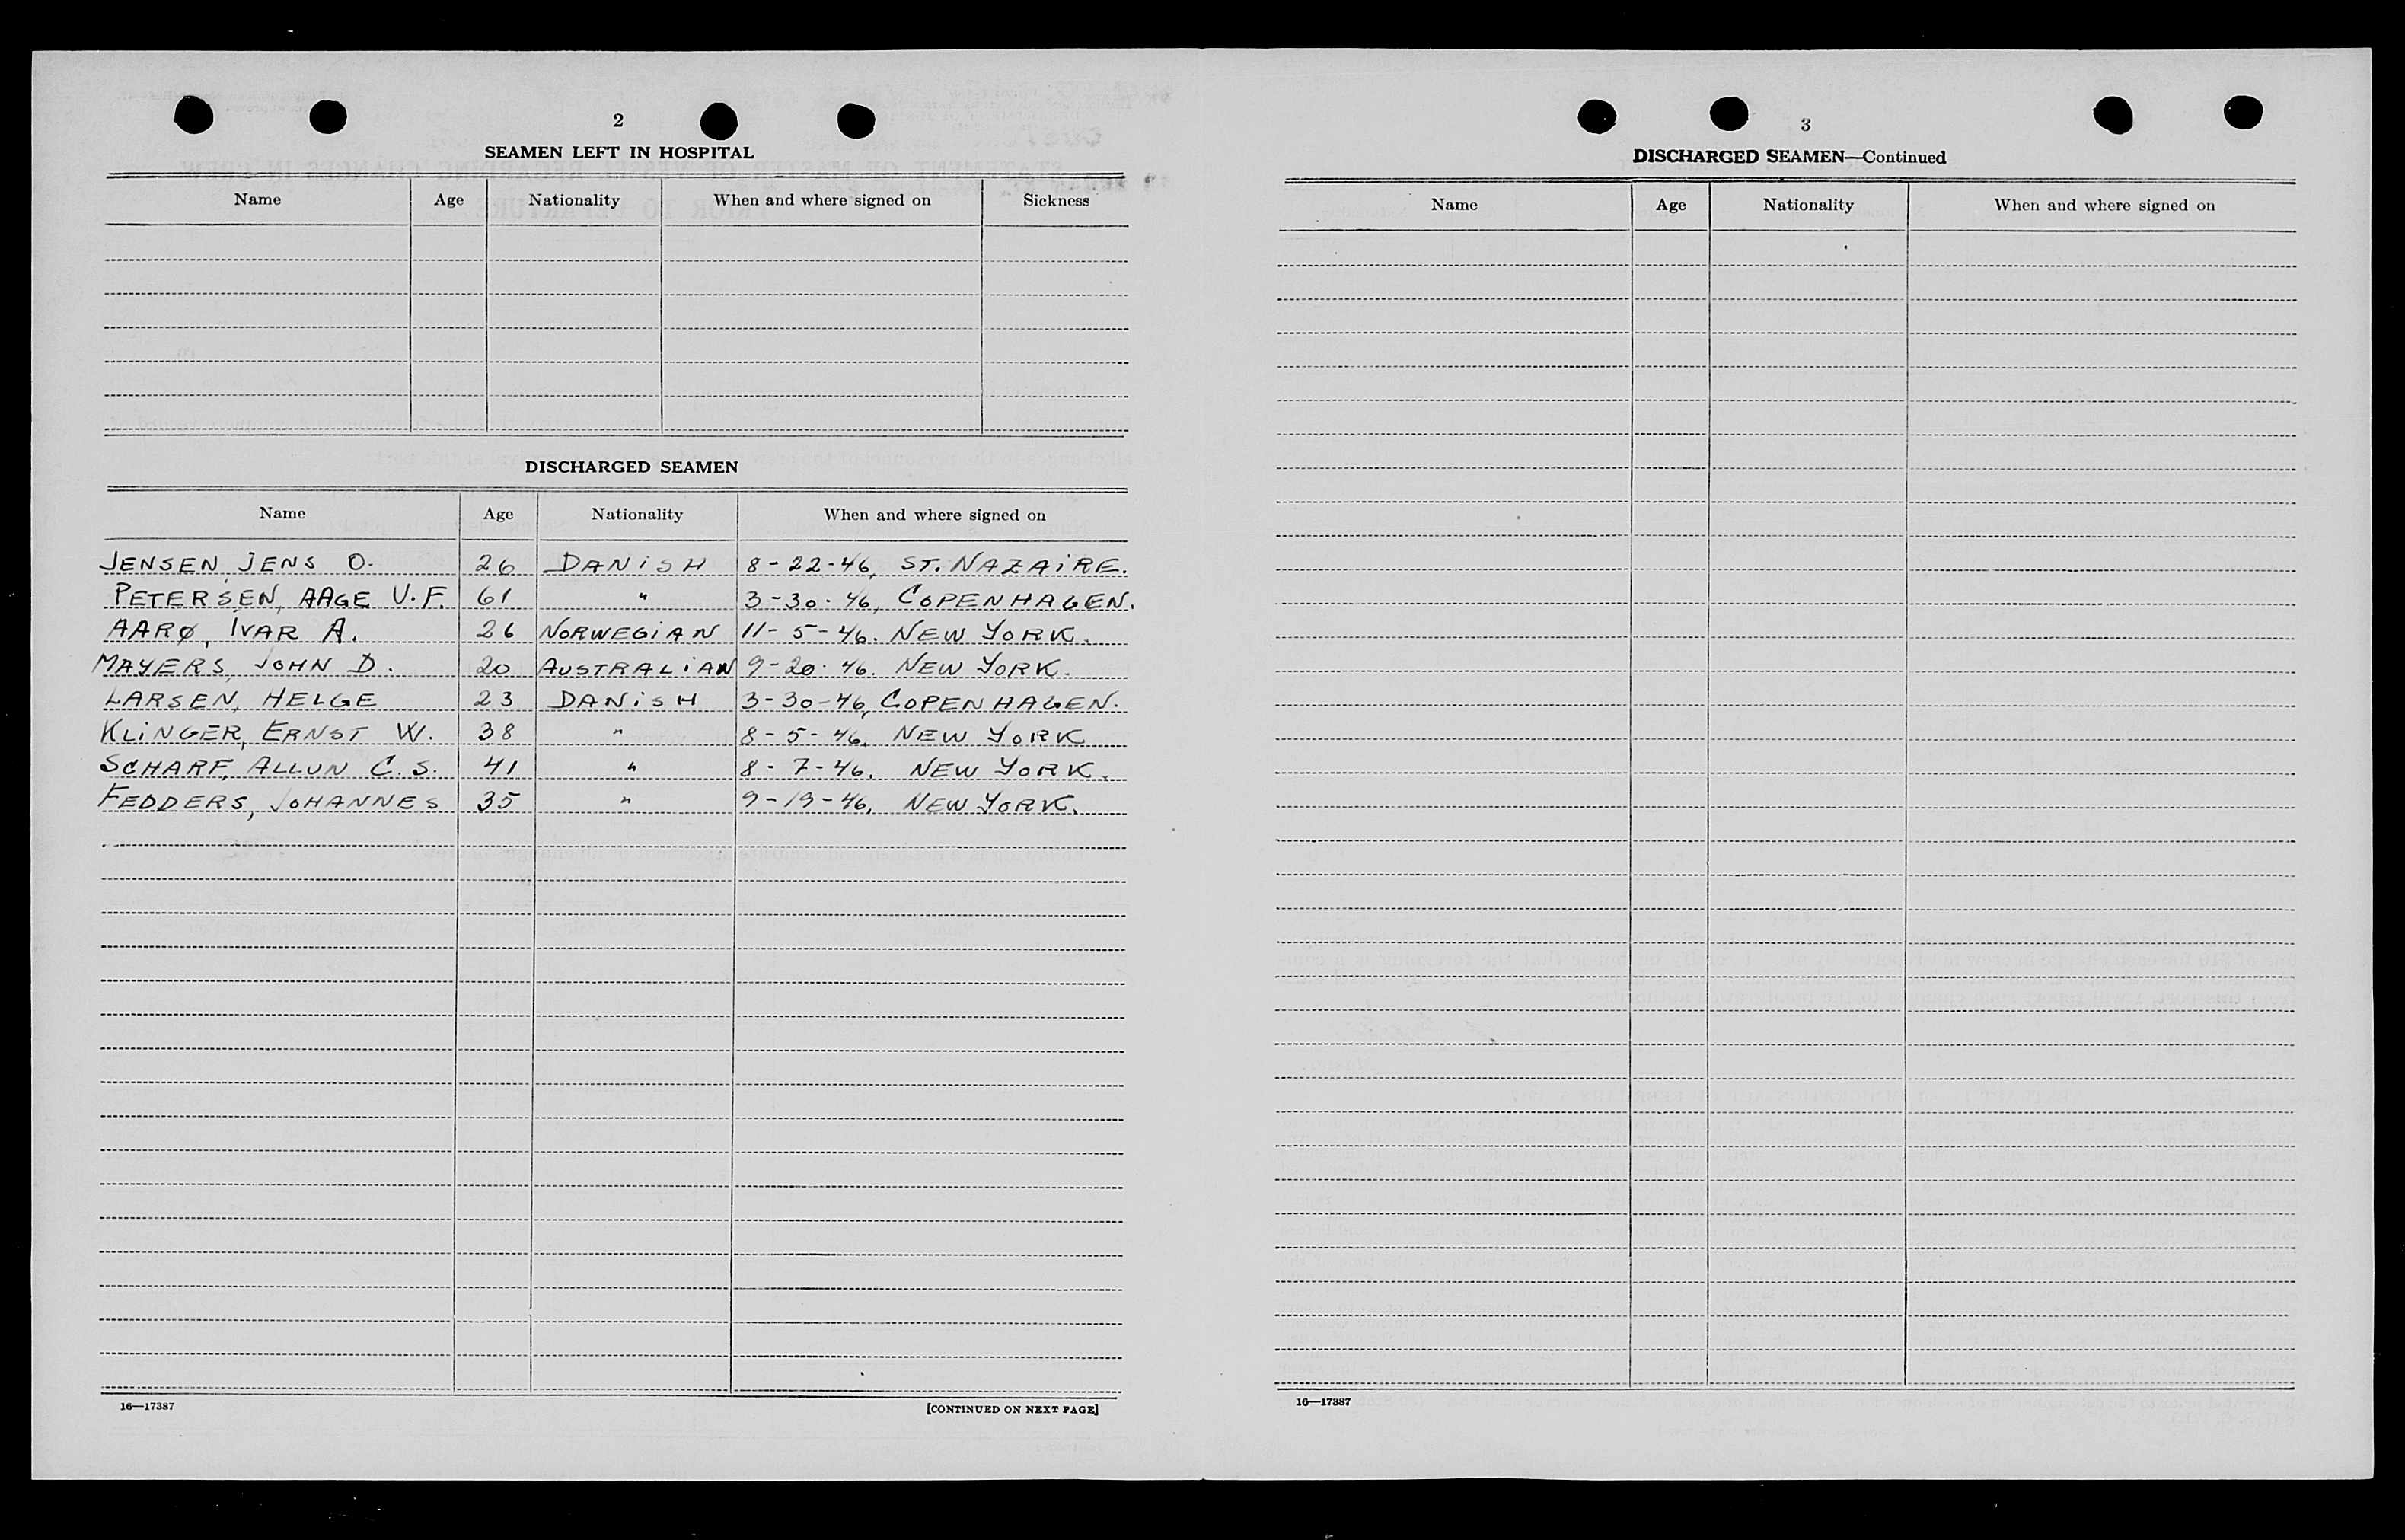 2
SEAMEN LEFT IN HOSPITAL
Name Age Nationality When and where signed on Sickness
DISCHARGED SEAMEN
Name Age Nationality When and where signed on
JENSEN, JENS O. 26 DANISH 8-22-46, ST. NAZAIRE.
PETERSEN, AAGE U.F. 61 " 3-30-46, COPENHAGEN.
AARØ, IVAR A. 26 NORWEGIAN 11-5-46. NEW YORK.
MAYERS, JOHN D. 20 AUSTRALIAN 9-20-46. NEW YORK.
LARSEN, HELGE 23 DANISH 3-30-46, COPENHAGEN.
KLINGER, ERNST W. 38 " 8-5-46, NEW YORK
SCHARF, ALLUN C.S. 41 " 8-7-46, NEW YORK.
FEDDERS, JOHANNES 35 " 9-19-46, NEW YORK.
16—17387 [CONTINUED ON NEXT PAGE]
3
DISCHARGED SEAMEN—Continued
Name Age Nationality When and where signed on
16—17387